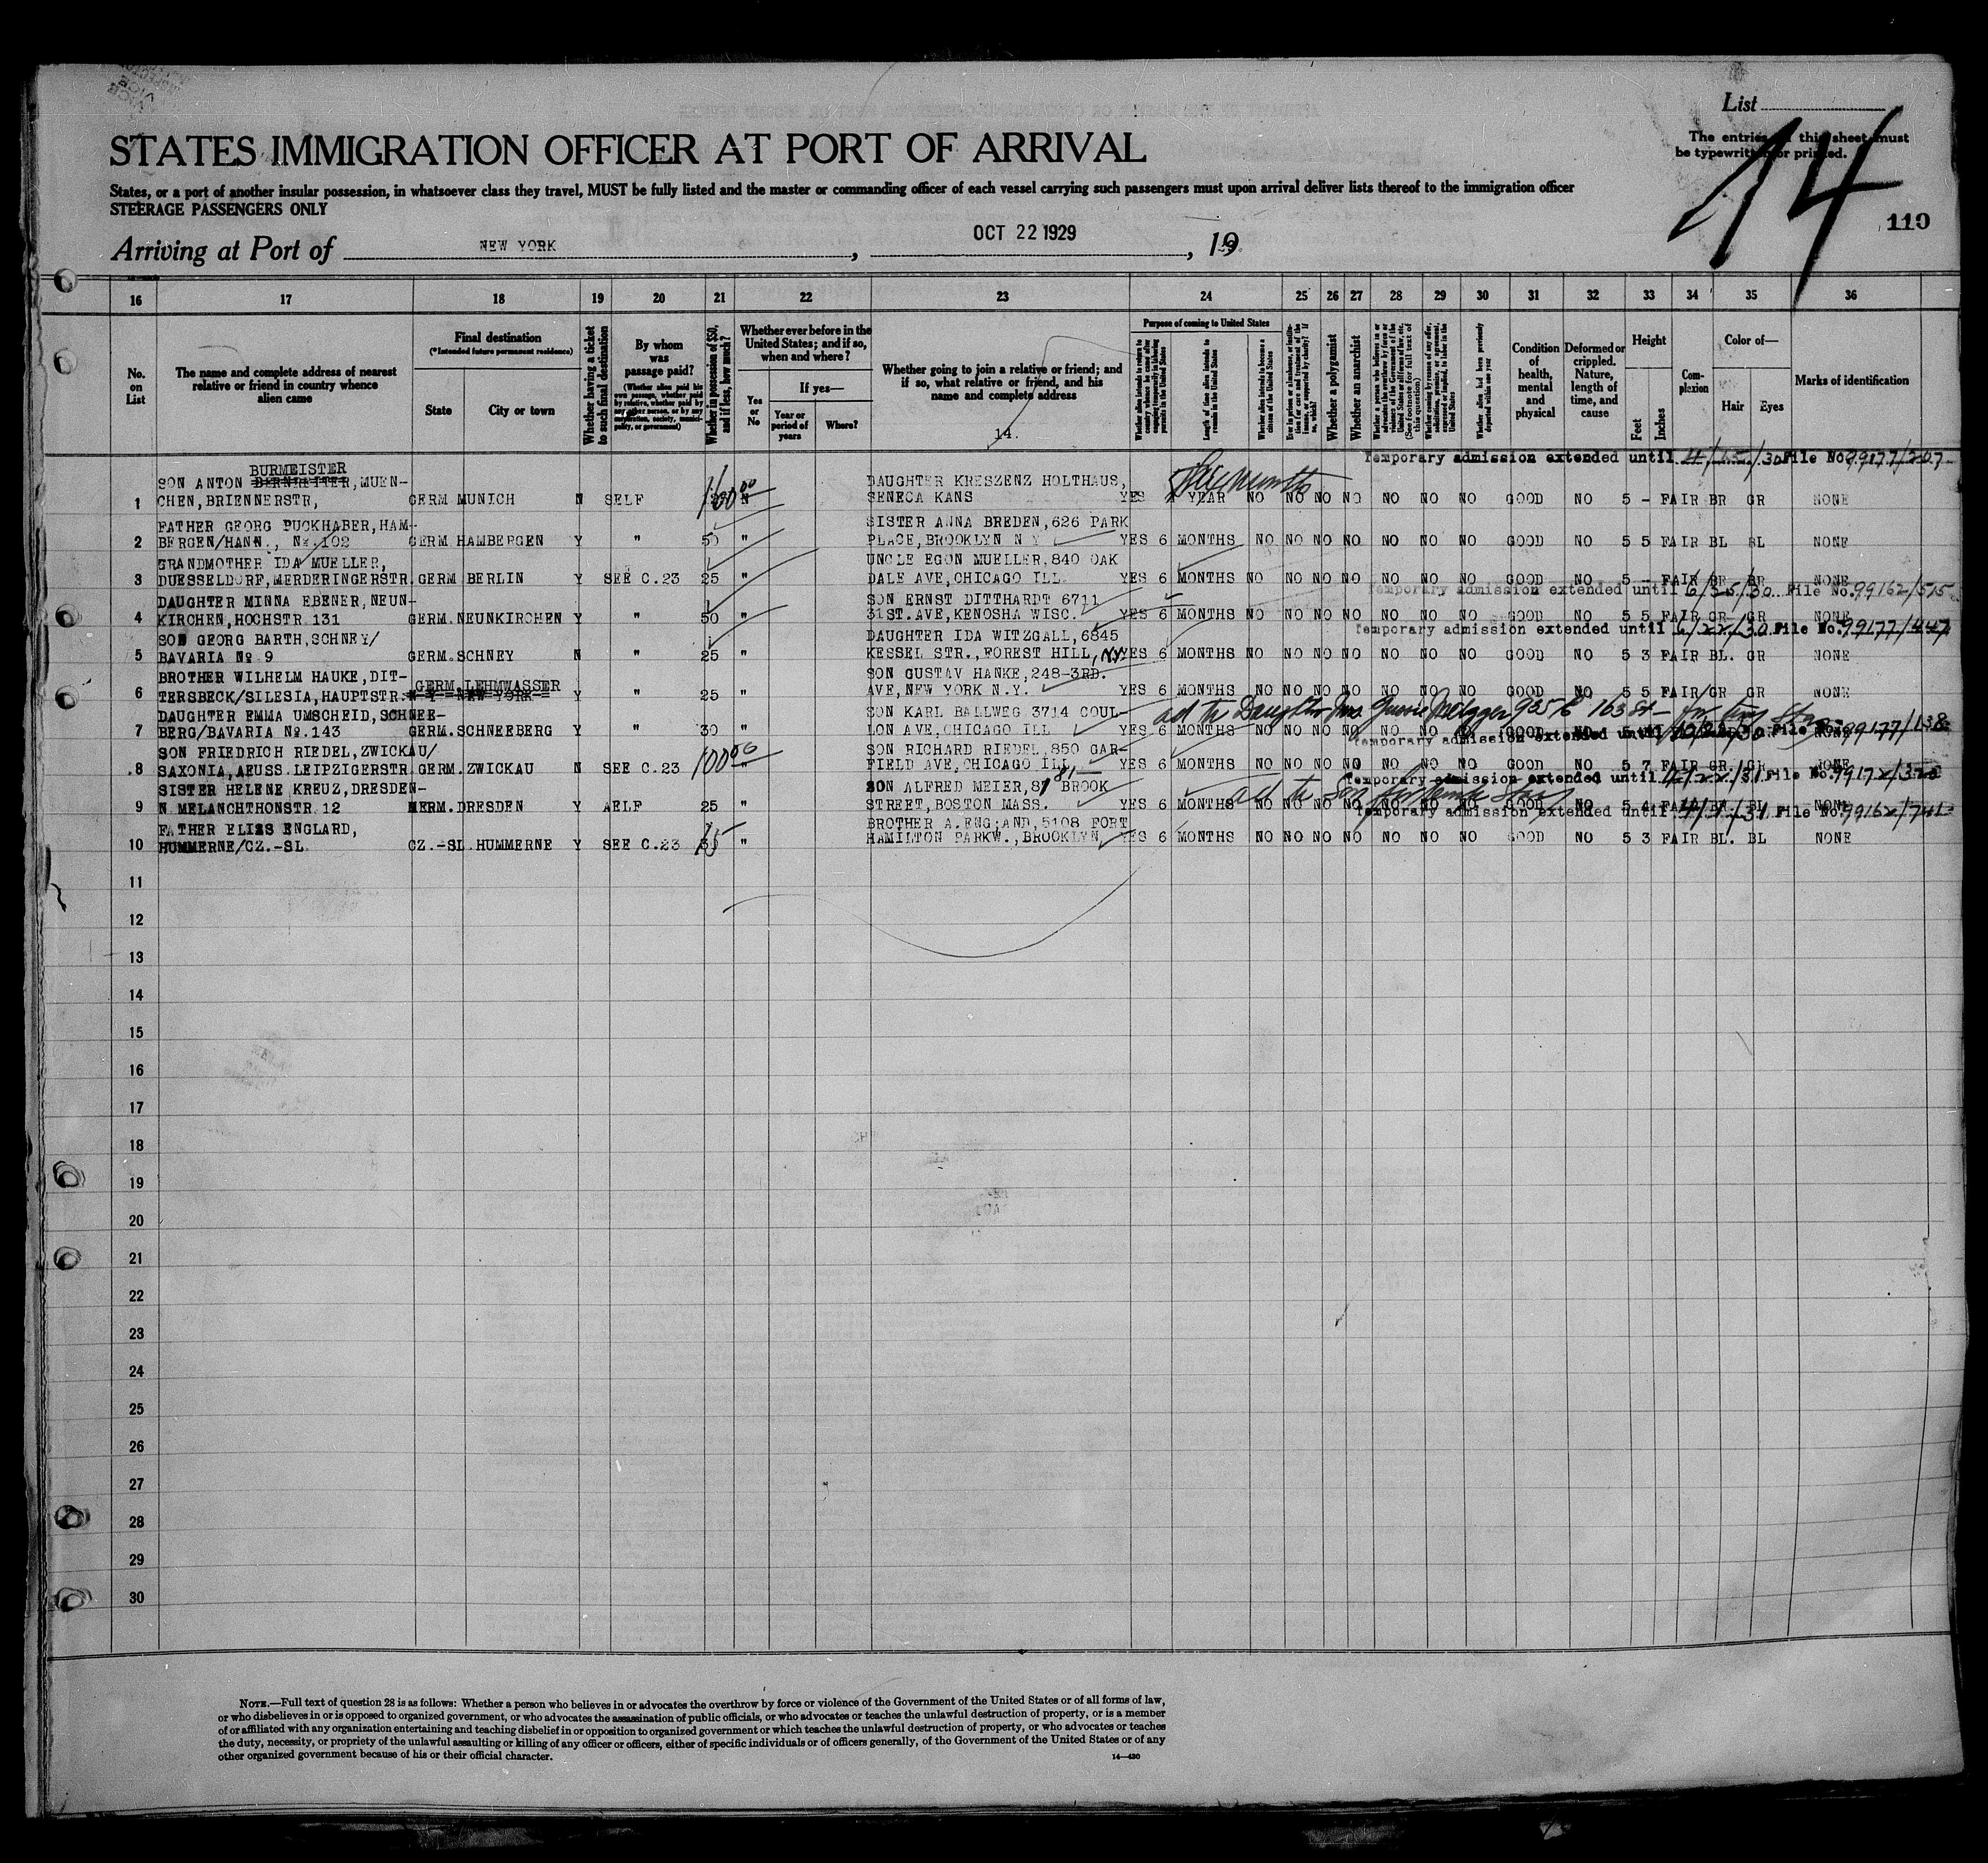 List
The entries this sheet must
be typewritten or printed.
14
110
STATES IMMIGRATION OFFICER AT PORT OF ARRIVAL
States, or a port of another insular possession, in whatsoever class they travel, MUST be fully listed and the master or commanding officer of each vessel carrying such passengers must upon arrival deliver lists thereof to the immigration officer
STEERAGE PASSENGERS ONLY
Arriving at Port of NEW YORK, OCT 22 1929, 19
16 17 18 19 20 21 22 23 24 25 26 27 28 29 30 31 32 33 34 35 36
No. on List
The name and complete address of nearest relative or friend in country whence alien came
Final destination
(*Intended future permanent residence)
State
City or town
Whether having a ticket to such final destination
By whom was passage paid?
(Whether alien paid his own passage, whether paid by relative, whether paid by any other person, or by any corporation, society, municipality, or government)
Whether in possession of $50, and if less, how much?
Whether ever before in the United States; and if so, when and where?
Yes or No
If yes—
Year or period of years
Where?
Whether going to join a relative or friend; and if so, what relative or friend, and his name and complete address
14.
Purpose of coming to United States
Whether alien intends to return to country whence he came after engaging temporarily in laboring pursuits in the United States
Length of time alien intends to remain in the United States
Whether alien intends to become a citizen of the United States
Whether a polygamist
Whether an anarchist
(See footnote for full text of this question)
Whether alien had been previously deported within one year
Condition of health, mental and physical
Deformed or crippled. Nature, length of time, and cause
Height
Feet
Inches
Complexion
Color of—
Hair
Eyes
Marks of identification
Temporary admission extended until 4/15/30 File No. 99177/207
BURMEISTER
SON ANTON BERNREITER, MUEN- DAUGHTER KRESZENZ HOLTHAUS, Six Months
1 CHEN, BRIENNERSTR, GERM MUNICH N SELF 100 00 N SENECA KANS YES YEAR NO NO NO NO NO NO NO GOOD NO 5 - FAIR BR GR NONE
FATHER GEORG PUCKHABER, HAM- SISTER ANNA BREDEN, 626 PARK
2 BERGEN/HANN., No. 102 GERM. HAMBERGEN Y " 50 " PLACE, BROOKLYN N Y YES 6 MONTHS NO NO NO NO NO NO NO GOOD NO 5 5 FAIR BL BL NONE
GRANDMOTHER IDA MUELLER, UNCLE EGON MUELLER, 840 OAK
3 DUESSELDORF, MERDERINGERSTR. GERM BERLIN Y SEE C.23 25 " DALE AVE, CHICAGO ILL. YES 6 MONTHS NO NO NO NO NO NO NO GOOD NO 5 - FAIR BR BR NONE
Temporary admission extended until 6/25/30 File No. 99162/515
DAUGHTER MINNA EBENER, NEUN- SON ERNST DITTHARDT 6711
4 KIRCHEN, HOCHSTR. 131 GERM. NEUNKIRCHEN Y " 50 " 31ST. AVE, KENOSHA WISC. YES 6 MONTHS NO NO NO NO NO NO NO GOOD NO 5 5 FAIR GR GR NONE
Temporary admission extended until 6/22/30 File No. 99177/447
SON GEORG BARTH, SCHNEY/ DAUGHTER IDA WITZGALL, 6845
5 BAVARIA No 9 GERM. SCHNEY N " 25 " KESSEL STR., FOREST HILL, N.Y. YES 6 MONTHS NO NO NO NO NO NO NO GOOD NO 5 3 FAIR BL. GR NONE
BROTHER WILHELM HAUKE, DIT- GERM. LEHMWASSER SON GUSTAV HANKE, 248-3RD.
6 TERSBECK/SILESIA, HAUPTSTR. N Y NEW YORK Y " 25 " AVE, NEW YORK N.Y. YES 6 MONTHS NO NO NO NO NO NO NO GOOD NO 5 5 FAIR GR GR NONE
DAUGHTER EMMA UMSCHEID, SCHNEE- SON KARL BALLWEG 3714 COUL- ad to Daughter Mrs. Gussie Metzger 925 E 163 St
7 BERG/BAVARIA No. 143 GERM. SCHNEEBERG Y " 30 " LON AVE, CHICAGO ILL YES 6 MONTHS NO NO NO NO NO NO NO GOOD NO
Temporary admission extended until File No. 99177/138
SON FRIEDRICH RIEDEL, ZWICKAU/ SON RICHARD RIEDEL, 850 GAR-
8 SAXONIA, AEUSS. LEIPZIGERSTR. GERM. ZWICKAU N SEE C.23 100 00 " FIELD AVE, CHICAGO ILL YES 6 MONTHS NO NO NO NO NO NO NO GOOD NO 5 7 FAIR GR GR NONE
Temporary admission extended until 4/22/31 File No. 99172/320
SISTER HELENE KREUZ, DRESDEN- SON ALFRED MEIER, 81 BROOK ad to Son
9 N. MELANCHTHONSTR. 12 GERM. DRESDEN Y AELF 25 " STREET, BOSTON MASS. YES 6 MONTHS NO NO NO NO NO NO NO GOOD NO 5 4 FAIR BR BL NONE
Temporary admission extended until File No. 99162/741
FATHER ELIAS ENGLARD, BROTHER A. ENG;AND, 5108 FORT
10 HUMMERNE/CZ.-SL. CZ.-SL. HUMMERNE Y SEE C.23 15 " HAMILTON PARKW., BROOKLYN, YES 6 MONTHS NO NO NO NO NO NO NO GOOD NO 5 3 FAIR BL. BL NONE
11
12
13
14
15
16
17
18
19
20
21
22
23
24
25
26
27
28
29
30
NOTE.—Full text of question 28 is as follows: Whether a person who believes in or advocates the overthrow by force or violence of the Government of the United States or of all forms of law,
or who disbelieves in or is opposed to organized government, or who advocates the assassination of public officials, or who advocates or teaches the unlawful destruction of property, or is a member
of or affiliated with any organization entertaining and teaching disbelief in or opposition to organized government or which teaches the unlawful destruction of property, or who advocates or teaches
the duty, necessity, or propriety of the unlawful assaulting or killing of any officer or officers, either of specific individuals or of officers generally, of the Government of the United States or of any
other organized government because of his or their official character.
14—430